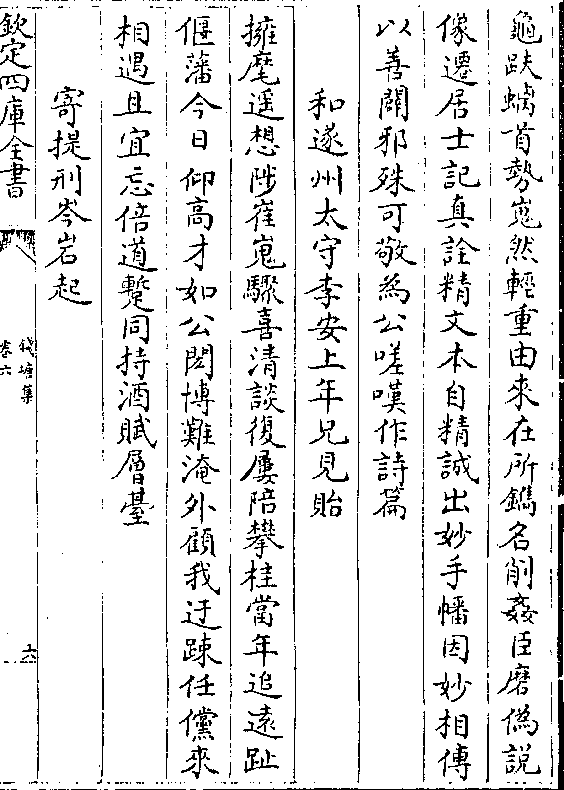 龜趺螭首勢嵬然輕重由來在所鐫名削姦臣磨偽說
像遷居士記真詮精文本自精誠出妙手幡因妙相傳
以善闢邪殊可敬為公嗟嘆作詩篇
和遂州太守李安上年兄見貽
擁麾遥想陟崔嵬驟喜清談復屢陪攀桂當年追遠趾
偃藩今日仰高才如公閎博難淹外顧我迂踈任儻來
相遇且宜忘倍道蹔同持酒賦層臺
寄提刑岑岩起
欽定四庫全書
錢塘集
卷六
六